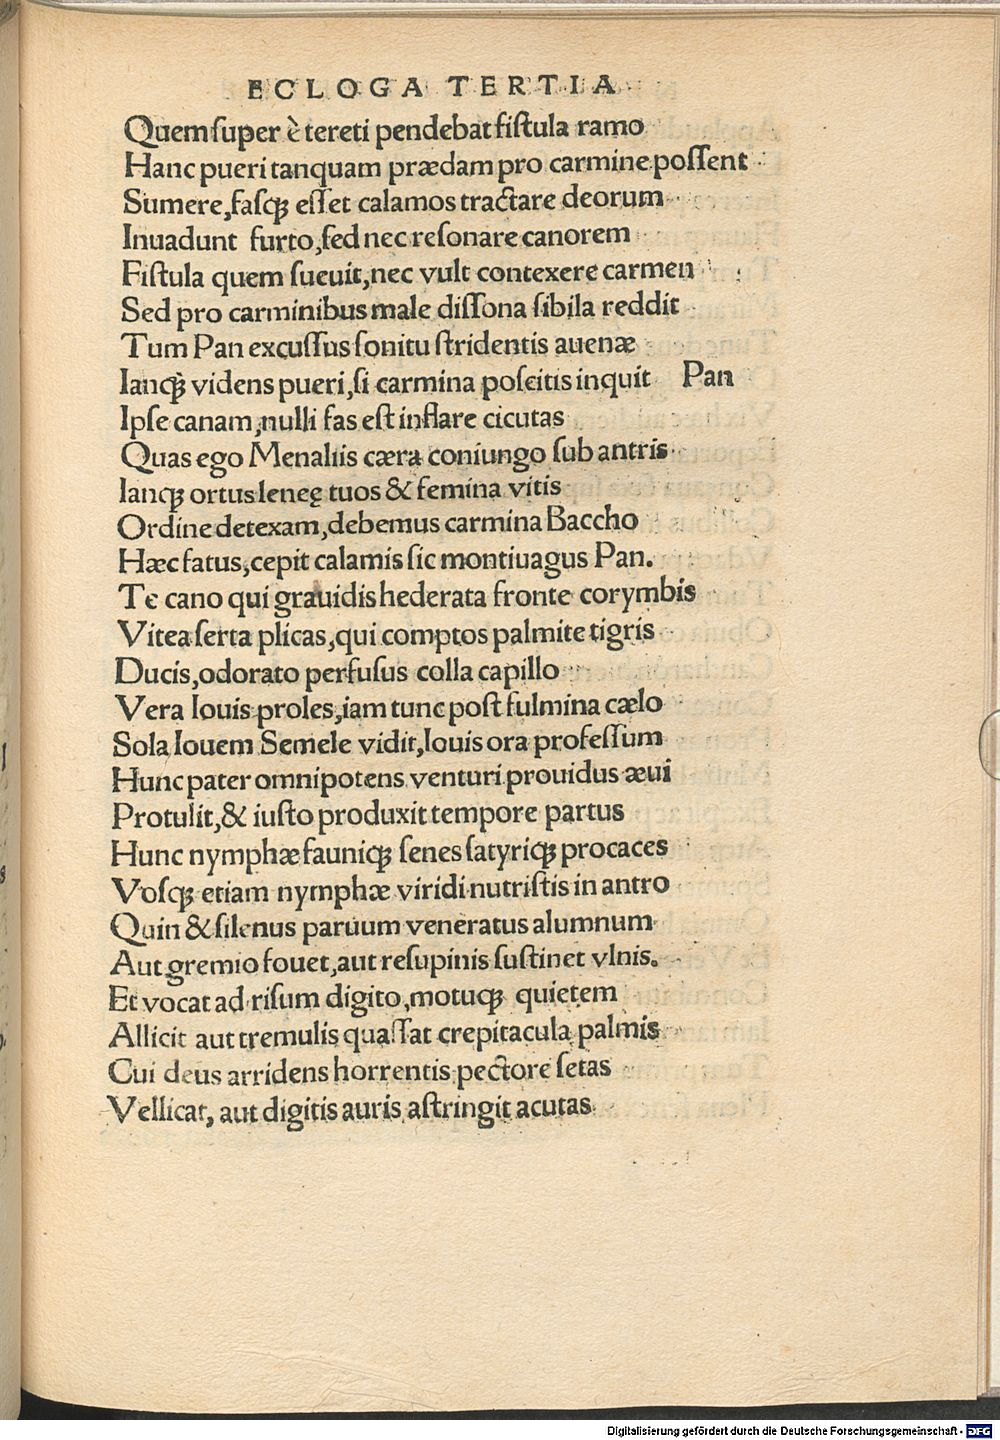 ECLOGA TERTIA
Quem super è tereti pendebat fiſtula ramo
Hanc pueri tanquam prædam pro carmine poſſent
Sumere, faſq; eſſet calamos tractare deorum
Inuadunt furto, ſed nec reſonare canorem
Fiſtula quem ſueuit, nec vult contexere carmen
Sed pro carminibus male diſſona ſibila reddit
Tum Pan excuſſus ſonitu ſtridentis auenæ
Ianq; videns pueri, ſi carmina poſcitis inquit Pan
Ipſe canam, nulli fas eſt inflare cicutas
Quas ego Menaliis cæra coniungo ſub antris
Ianq; ortus leneę tuos & femina vitis
Ordine detexam, debemus carmina Baccho
Hæc fatus, cepit calamis ſic montiuagus Pan.
Te cano qui grauidis hederata fronte corymbis
Vitea ſerta plicas, qui comptos palmite tigris
Ducis, odorato perfuſus colla capillo
Vera Iouis proles, iam tunc poſt fulmina cælo
Sola Iouem Semele vidit, Iouis ora profeſſum
Hunc pater omnipotens venturi prouidus æui
Protulit, & iuſto produxit tempore partus
Hunc nymphæ fauniq; ſenes ſatyriq; procaces
Voſq; etiam nymphæ viridi nutriſtis in antro
Quin & ſilenus paruum veneratus alumnum
Aut gremio fouet, aut reſupinis ſuſtinet vlnis.
Et vocat ad riſum digito, motuq; quietem
Allicit aut tremulis quaſſat crepitacula palmis
Cui deus arridens horrentis pectore ſetas
Vellicat, aut digitis auris aſtringit acutas
Digitalisierung gefördert durch die Deutsche Forschungsgemeinschaft - DFG